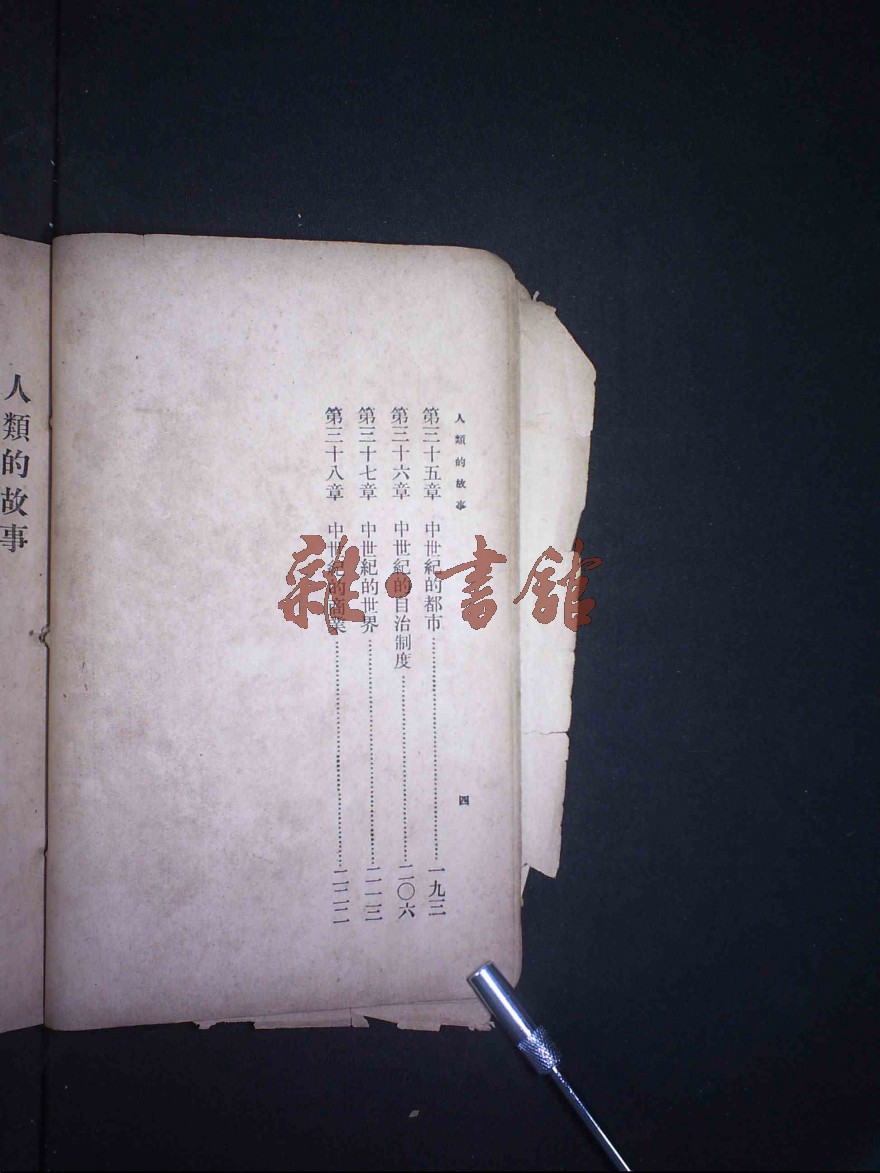 人類的故事
四
第三十五章 中世紀的都市……一九三
第三十六章 中世紀的自治制度……二〇六
第三十七章 中世紀的世界……二一三
第三十八章 中世紀的商業……二二二
人類的故事
雜·書館